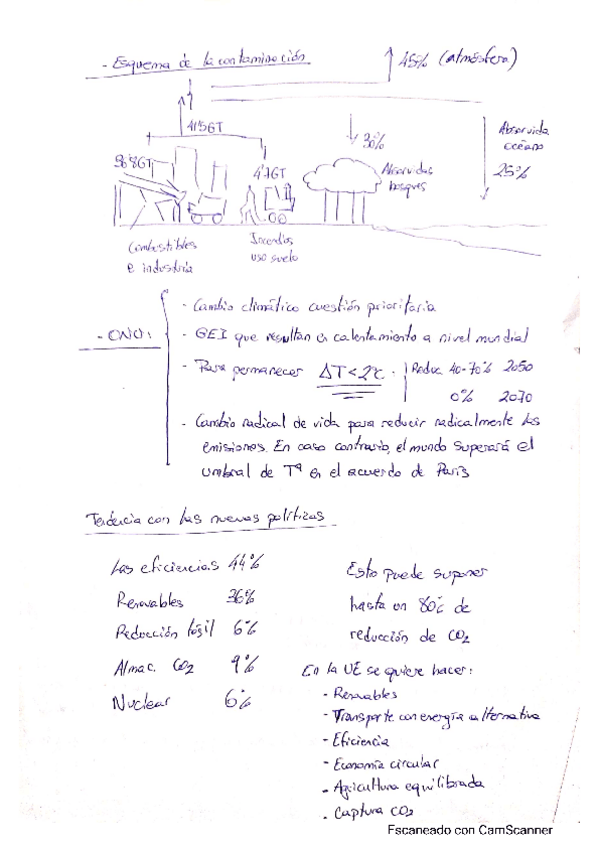 - Esquema de la contaminación
45% (atmósfera)
41'5GT
36'8GT
4'7GT
30%
Absorvidos
bosques
Absorvido
océano
25%
Combustibles
e industria
Incendios
uso suelo
- ONU:
- Cambio climático cuestión prioritaria
- GEI que resultan en calentamiento a nivel mundial
- Para permanecer ΔT<2ºc. Reduc 40-70% 2050
0% 2070
- Cambio radical de vida para reducir radicalmente las
emisiones. En caso contrario, el mundo superará el
umbral de Tª en el acuerdo de París
Tendencia con las nuevas políticas
Las eficiencias 44%
Renovables 36%
Reducción fósil 6%
Almac. CO2 9%
Nuclear 6%
Esto puede suponer
hasta un 80% de
reducción de CO2
En la UE se quiere hacer:
- Renovables
- Transporte con energía alternativa
- Eficiencia
- Economía circular
- Agricultura equilibrada
- Captura CO2
Escaneado con CamScanner